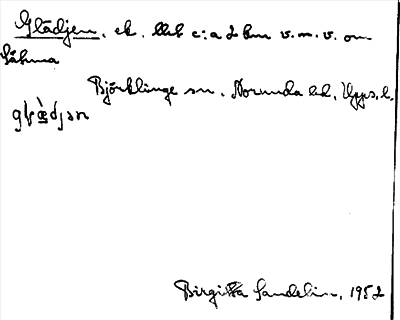 Glädjen. ek. blek c:a 2 km v.m.v. om
Låhma
Björklinge sn. Norunda hd, Upps. l.
Birgitta Sandelin, 1952